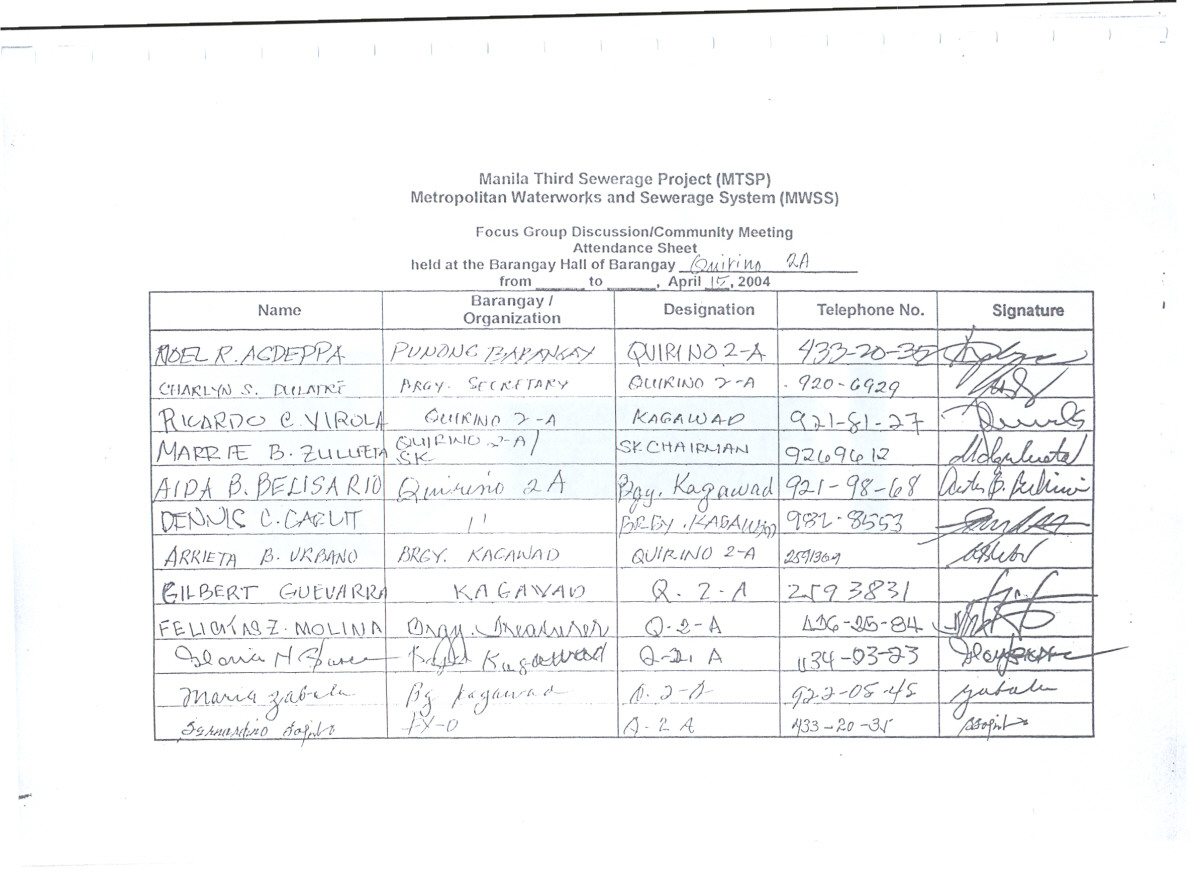 Manila Third Sewerage Project (MTSP)
Metropolitan Waterworks and Sewerage System (MWSS)
Focus Group Discussion/Community Meeting
Attendance Sheet
held at the Barangay Hall of Barangay Quirino 2A
from ______ to ______, April 15, 2004
Name Barangay / Organization Designation Telephone No. Signature
NOEL R. AGDEPPA PUNONG BARANGAY QUIRINO 2-A 433-20-35
CHARLYN S. BRGY. SECRETARY QUIRINO 2-A 920-6929
RICARDO C. VIROLA QUIRINO 2-A KAGAWAD 921-81-27
B. ZULUETA QUIRINO 2-A/ SK SK CHAIRMAN 9269612
AIDA B. BELISARIO Quirino 2A Bgy. Kagawad 921-98-68
DENNIS C. CAGUT 11 BRGY. KAGAWAD 982-8553
ARRIETA B. URBANO BRGY. KAGAWAD QUIRINO 2-A
GILBERT GUEVARRA KAGAWAD Q. 2-A 259 3831
Z. MOLINA Brgy. Treasurer Q-2-A
Gloria Kagawad Q-2. A 434-03-23
Maria Zabala Bg Kagawad Q. 2-A 922-05-45
Q-2 A 433-20-35